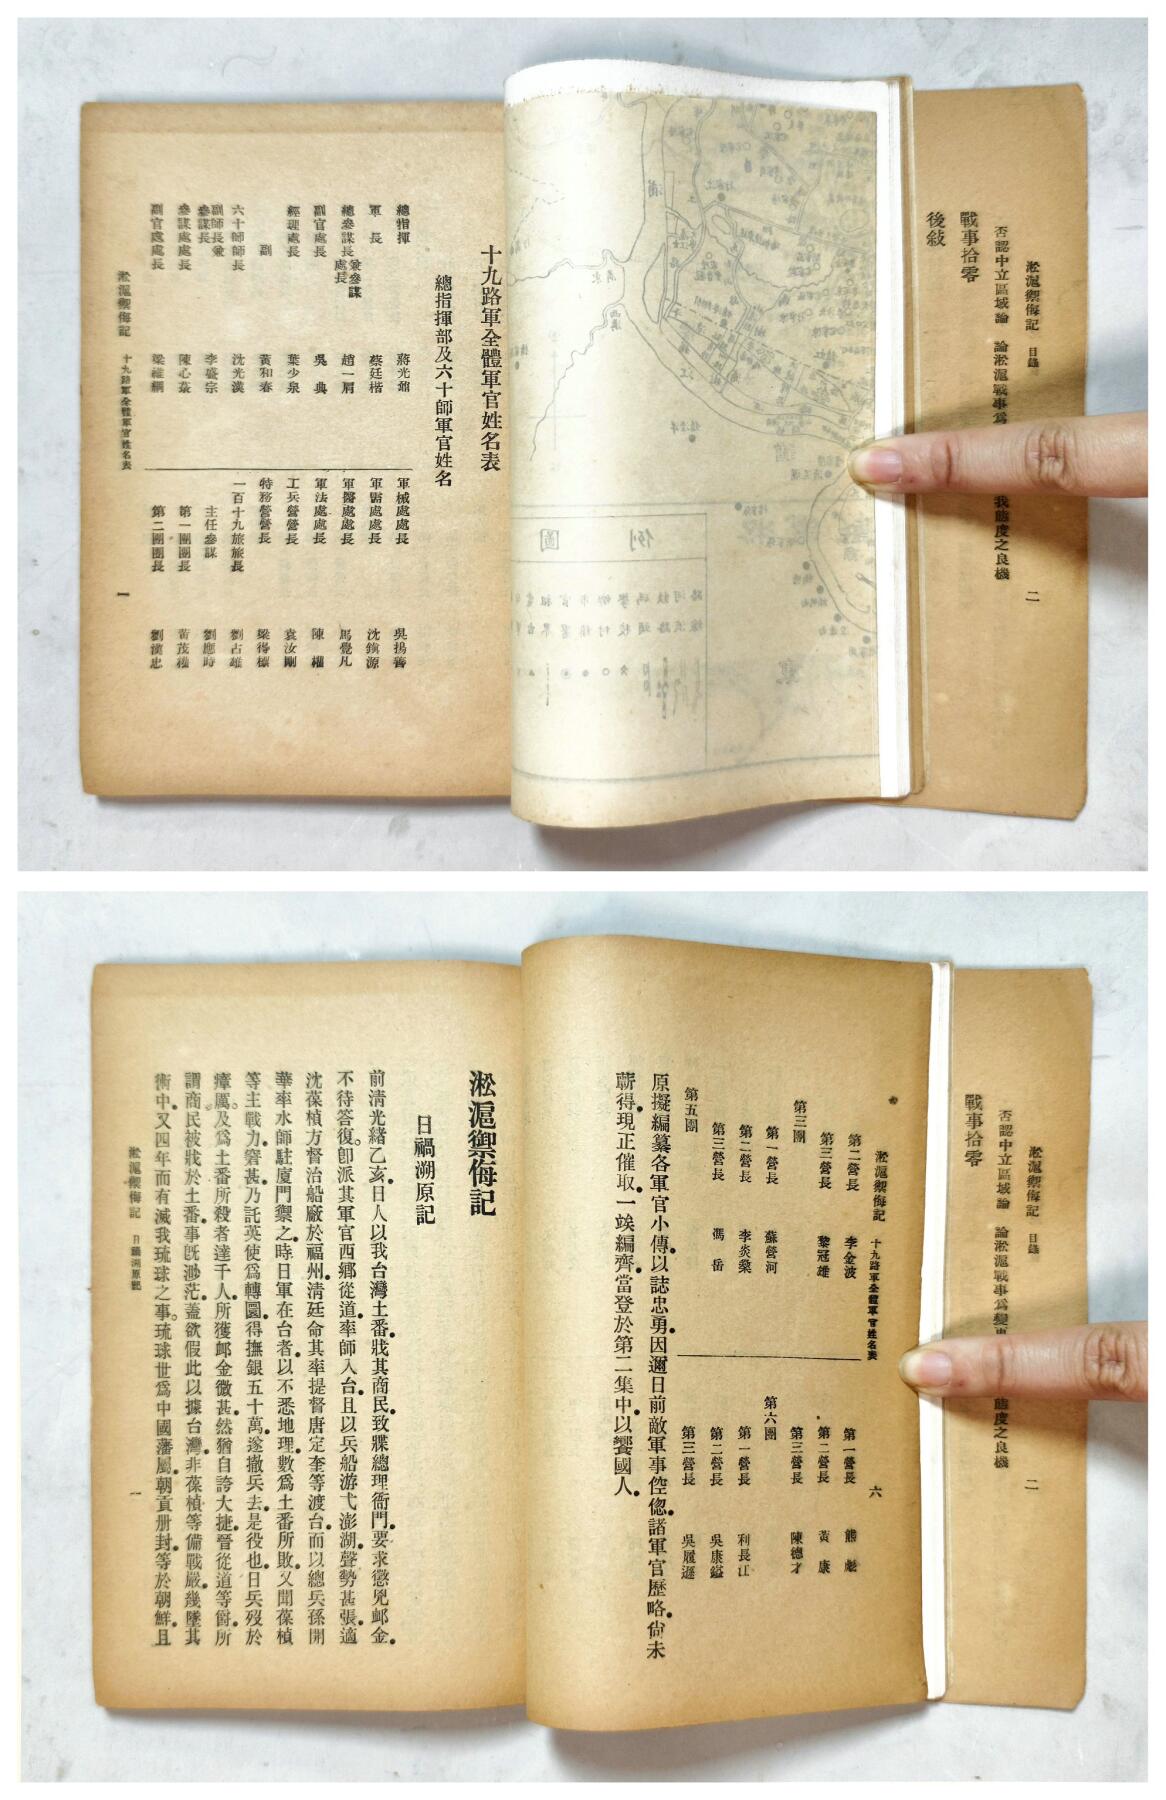 淞滬禦侮記 目錄 二
否認中立區域論 論淞滬戰事為 我態度之良機
戰事拾零
後敍
例 圖
十九路軍全體軍官姓名表
總指揮部及六十師軍官姓名
總指揮 蔣光鼐
軍長 蔡廷楷
總參謀長兼參謀處長 趙一肩
副官處長 吳典
經理處長 葉少泉
副 黃和春
六十師師長 沈光漢
副師長兼參謀長 李盛宗
參謀處處長 陳心菉
副官處處長 梁維綱
軍械處處長 吳揚善
軍需處處長 沈鎮源
軍醫處處長 馬覺凡
軍法處處長 陳權
工兵營營長 袁汝剛
特務營營長 梁得標
一百十九旅旅長 劉占雄
主任參謀 劉應時
第一團團長 黃茂權
第二團團長 劉漢忠
淞滬禦侮記 十九路軍全體軍官姓名表 一
淞滬禦侮記 目錄 二
否認中立區域論 論淞滬戰事為變更 態度之良機
戰事拾零
淞滬禦侮記 十九路軍全體軍官姓名表 六
第二營長 李金波
第三營長 黎冠雄
第三團
第一營長 蘇營河
第二營長 李炎榮
第三營長 馮岳
第五團
第一營長 熊彪
第二營長 黃康
第三營長 陳德才
第六團
第一營長 利長江
第二營長 吳康鎰
第三營長 吳履遜
原擬編纂各軍官小傳以誌忠勇因邇日前敵軍事倥傯諸軍官歷略尙未
蘄得現正催取一竢編齊當登於第二集中以饗國人
淞滬禦侮記
日禍溯原記
前清光緒乙亥日人以我台灣土番戕其商民致牒總理衙門要求懲兇卹金
不待答復。卽派其軍官西鄉從道率師入台且以兵船游弋澎湖聲勢甚張適
沈葆楨方督治船廠於福州清廷命其率提督唐定奎等渡台而以總兵孫開
華率水師駐廈門禦之時日軍在台者以不悉地理數為土番所敗又聞葆楨
等主戰力窘甚乃託英使為轉圜得撫銀五十萬遂撤兵去是役也日兵歿於
瘴厲。及為土番所殺者達千人所獲卹金微甚然猶自誇大捷晉從道等爵所
謂商民被戕於土番事旣渺茫蓋欲假此以據台灣非葆楨等備戰嚴幾墜其
術中又四年而有滅我琉球之事。琉球世為中國藩屬朝貢册封等於朝鮮且
淞滬禦侮記 日禍溯原記 一